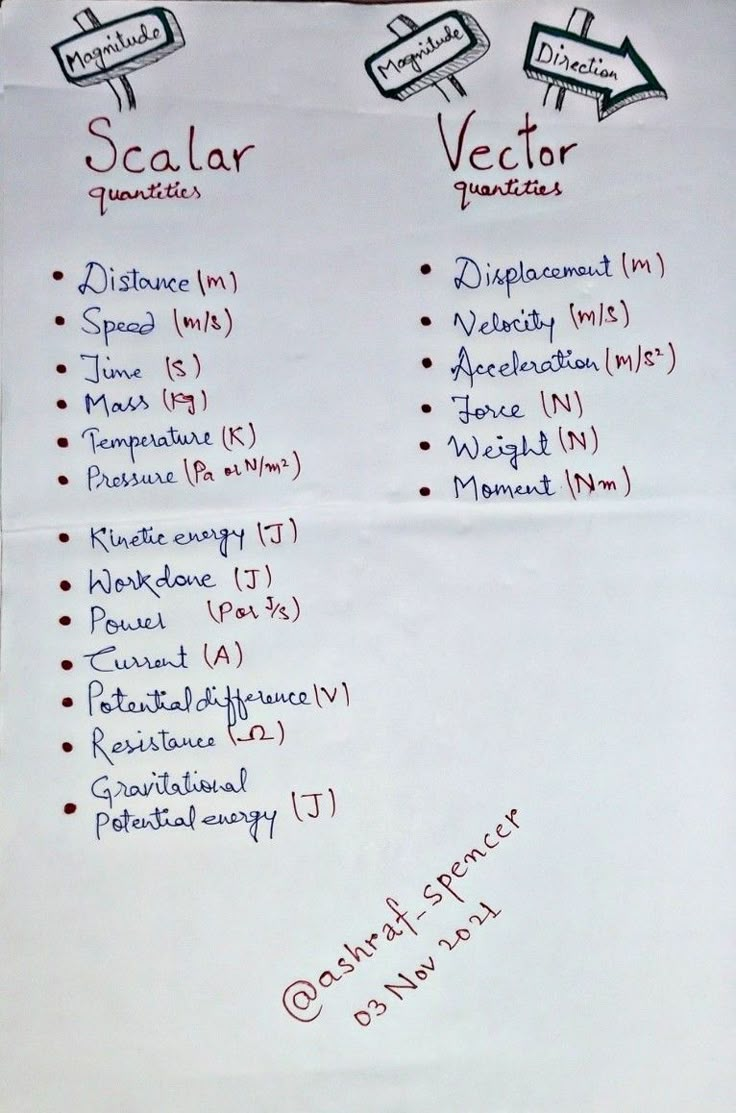 Magnitude
Scalar
quantities
• Distance (m)
• Speed (m/s)
• Time (s)
• Mass (Kg)
• Temperature (K)
• Pressure (Pa or N/m²)
• Kinetic energy (J)
• Work done (J)
• Power (P or J/s)
• Current (A)
• Potential difference (V)
• Resistance (Ω)
• Gravitational
Potential energy (J)
Magnitude Direction
Vector
quantities
• Displacement (m)
• Velocity (m/s)
• Acceleration (m/s²)
• Force (N)
• Weight (N)
• Moment (Nm)
@ashraf_spencer
03 Nov 2021